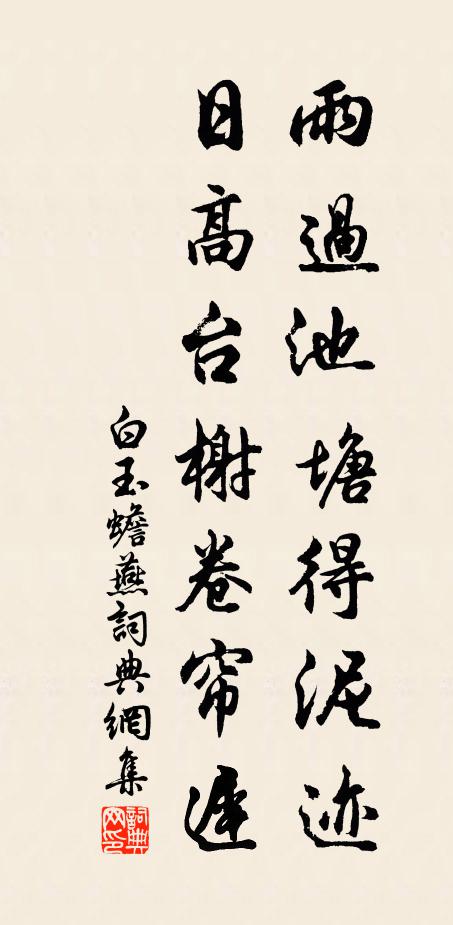 雨過池塘得泥迹
日高台榭卷帘遲
白玉蟾燕詞典網集
詞典網印